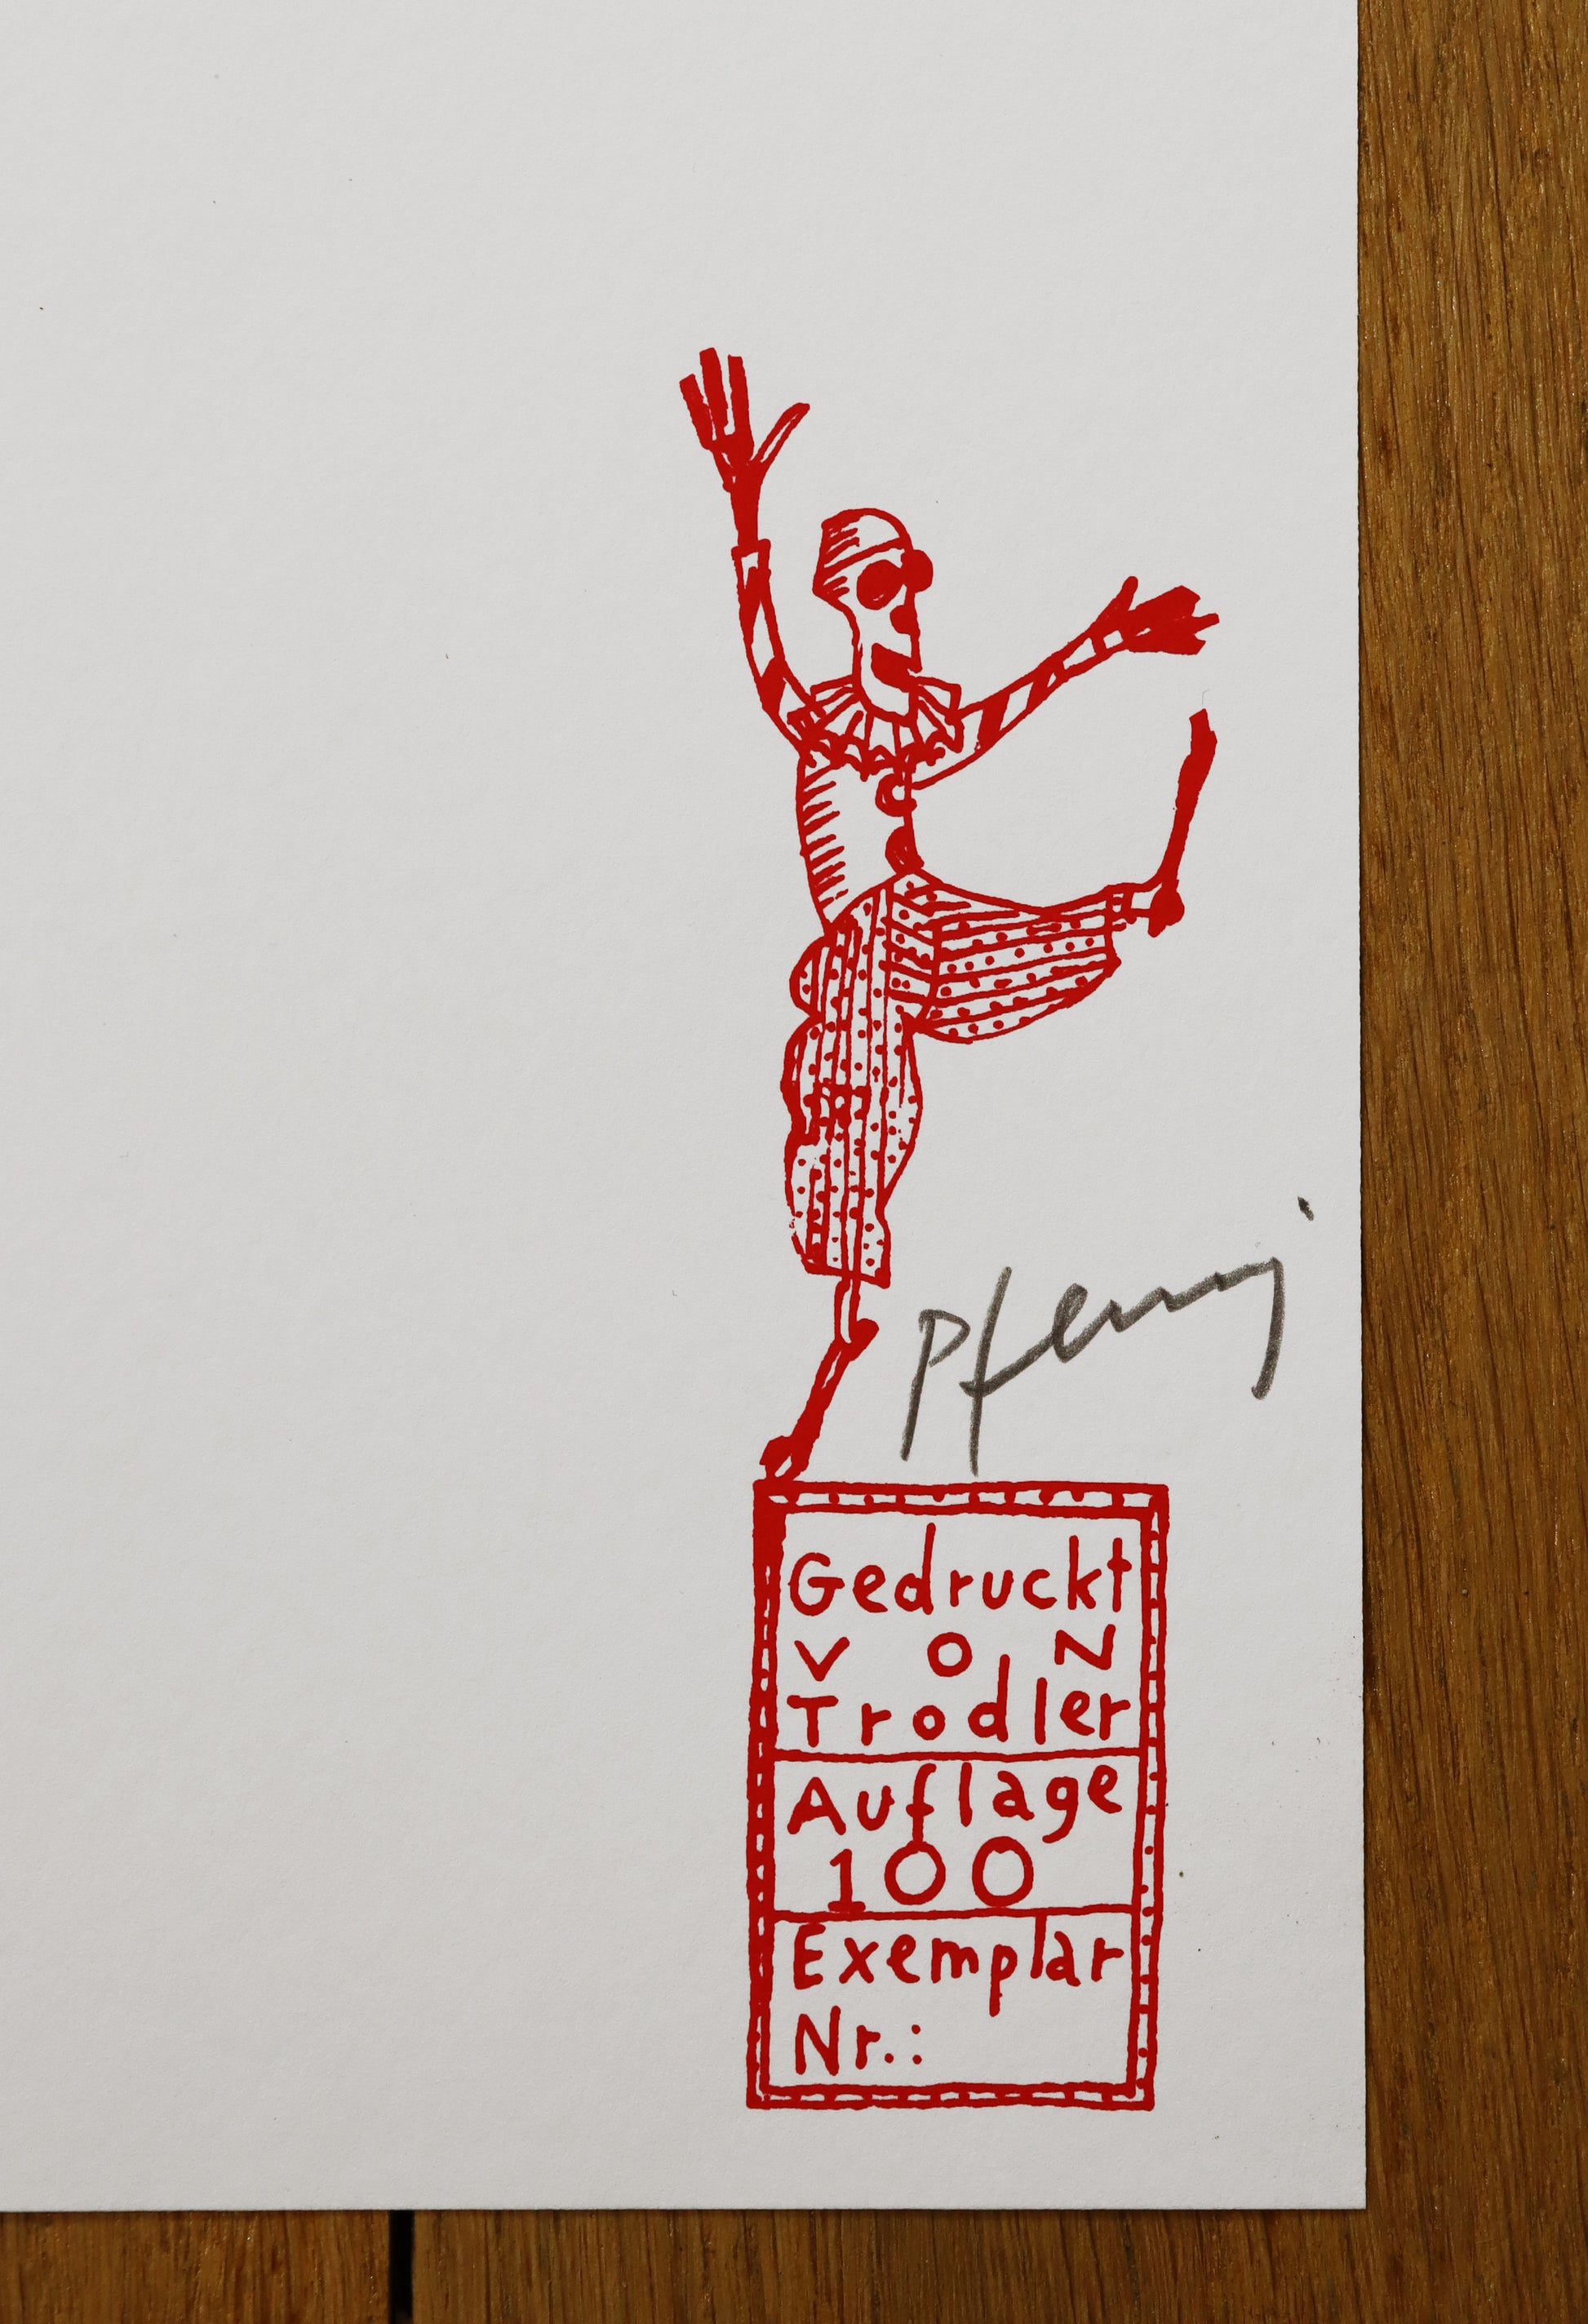 Gedruckt
von
Trodler
Auflage
100
Exemplar
Nr.: